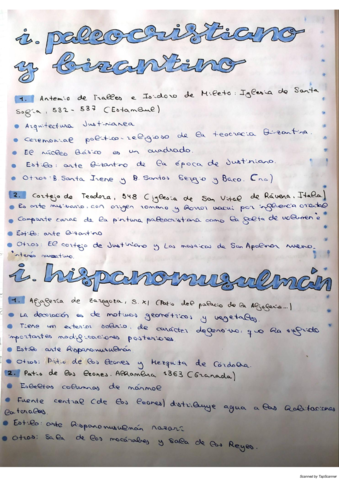 i. paleocristiano
y bizantino
1. Antemio de Tralles e Isidoro de Mileto. Iglesia de Santa
Sofía. 532 - 537 (Estambul)
• Arquitectura Justinianea
• Ceremonial político-religioso de la teocracia Bizantina
• El núcleo básico es un cuadrado
• Estilo: arte bizantino de la época de Justiniano.
• Otros: B Santa Irene y B Santos Sergio y Baco.
2. Cortejo de Teodora, 548 (iglesia de San Vital de Rávena, Italia)
• Es arte musivario, con origen romano y
• Comparte carac de la pintura paleocristiana como la falta de volumen
• Estilo: arte bizantino
• Otros: El cortejo de Justiniano y Los mosaicos de San Apolinar nuevo.
i. hispanomusulmán
1. Aljafería de Zaragoza, S. XI (Patio del palacio de la Aljafería)
• La decoración es de motivos geométricos y vegetales
• Tiene un exterior sobrio, de carácter defensivo, que ha sufrido
importantes modificaciones posteriores
• Estilo: arte hispanomusulmán
• Otros: Patio de los Leones y Mezquita de Córdoba
2. Patio de los Leones. Alhambra 1363 (Granada)
• Esbeltas columnas de mármol
• Fuente central (de los leones) distribuye agua a las habitaciones
laterales
• Estilo: arte hispanomusulmán nazarí
• Otros: Sala de los mocárabes y Sala de los Reyes.
Scanned by TapScanner